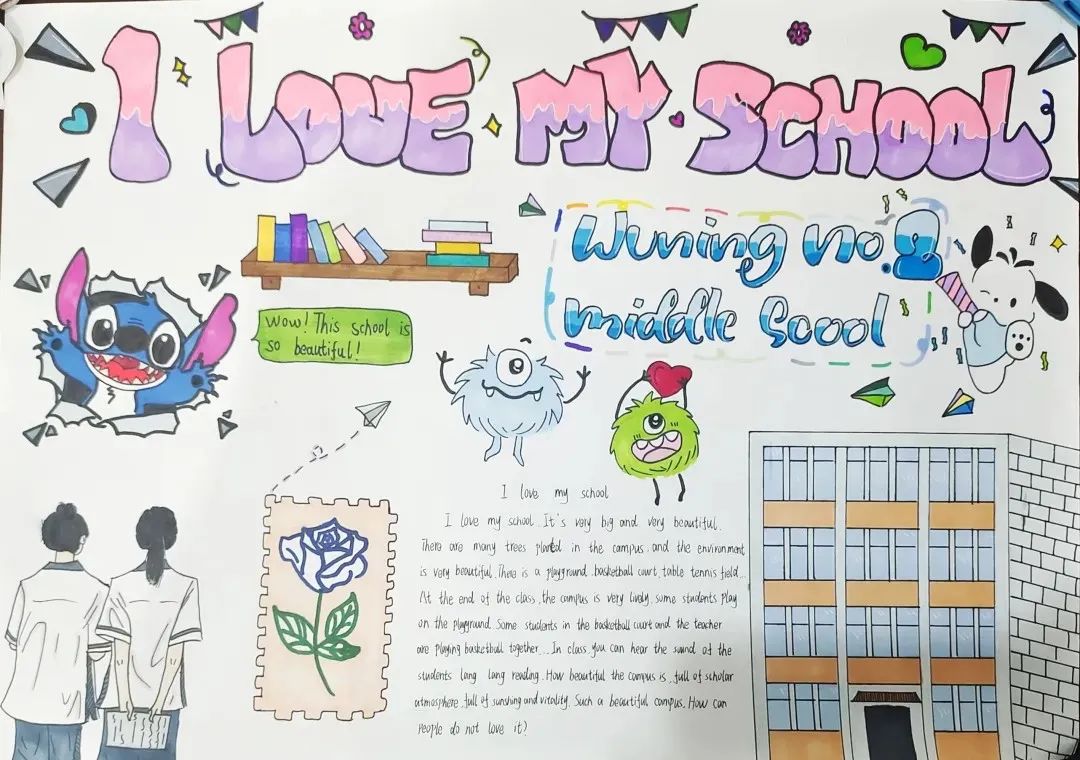 I LOVE MY SCHOOL
Wuning no.2
middle Scool
Wow! This school is
so beautiful!
I love my school
I love my school. It's very big and very beautiful.
There are many trees planted in the campus, and the environment
is very beautiful. There is a playground. basketball court. table tennis field...
At the end of the class, the campus is very lively. some students play
on the playground. Some students in the basketball court and the teacher
are playing basketball together... In class, you can hear the sound of the
students lang lang reading. How beautiful the campus is, full of scholar
atmosphere, full of sunshing and vitality. Such a beautiful campus. How can
people do not love it?